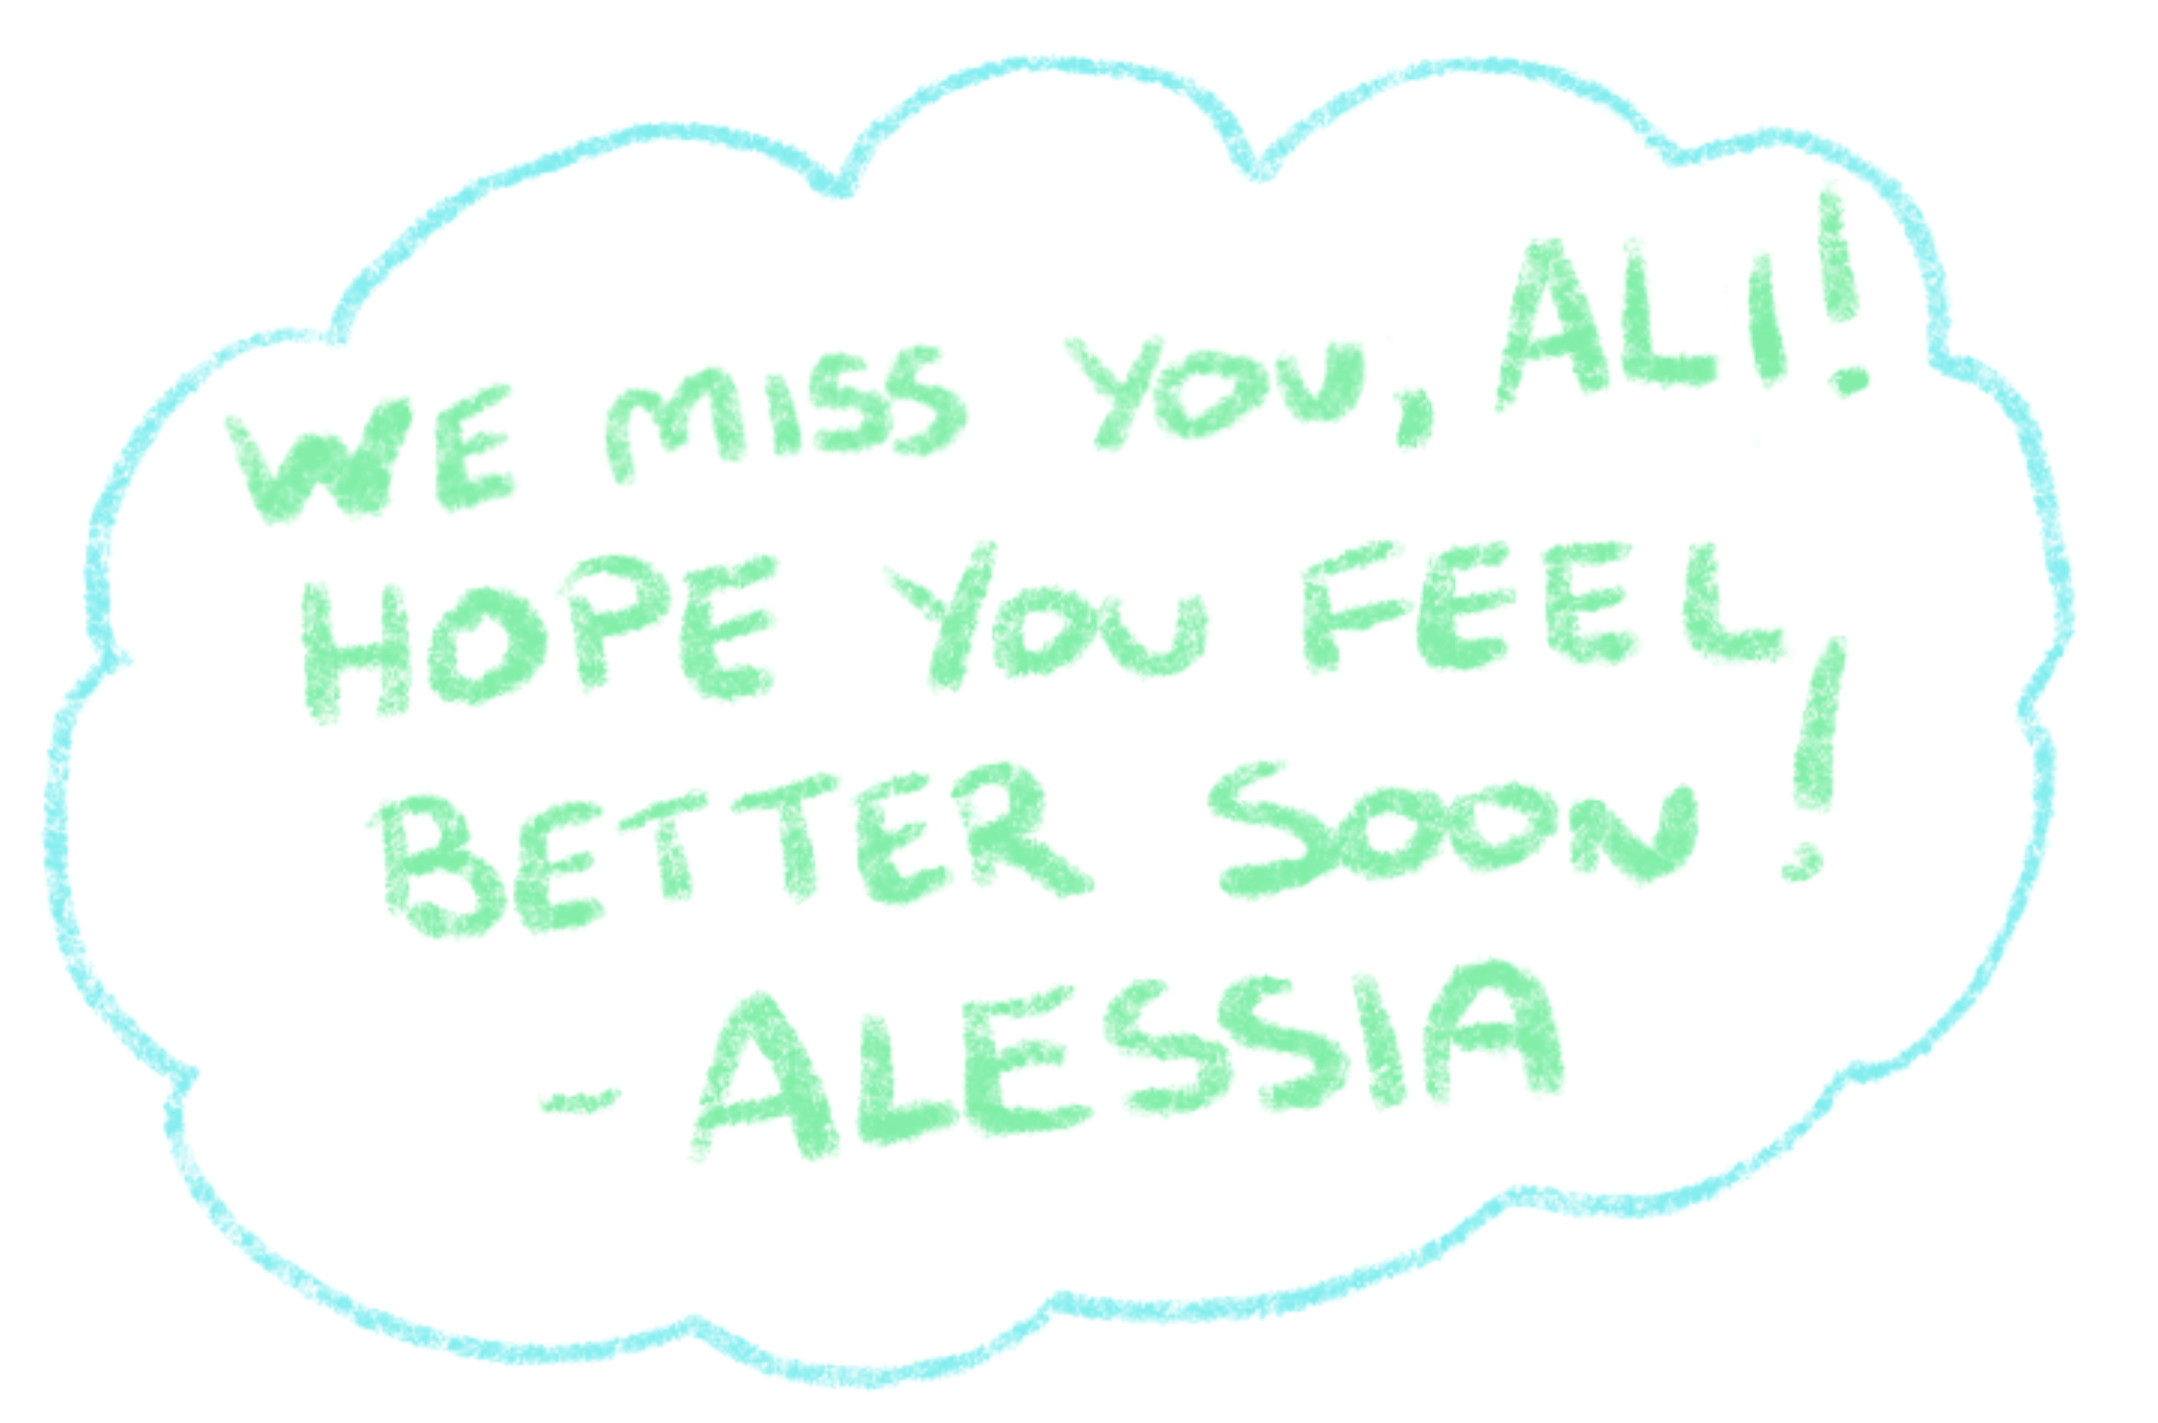 WE MISS YOU, ALI!
HOPE YOU FEEL
BETTER SOON!
- ALESSIA